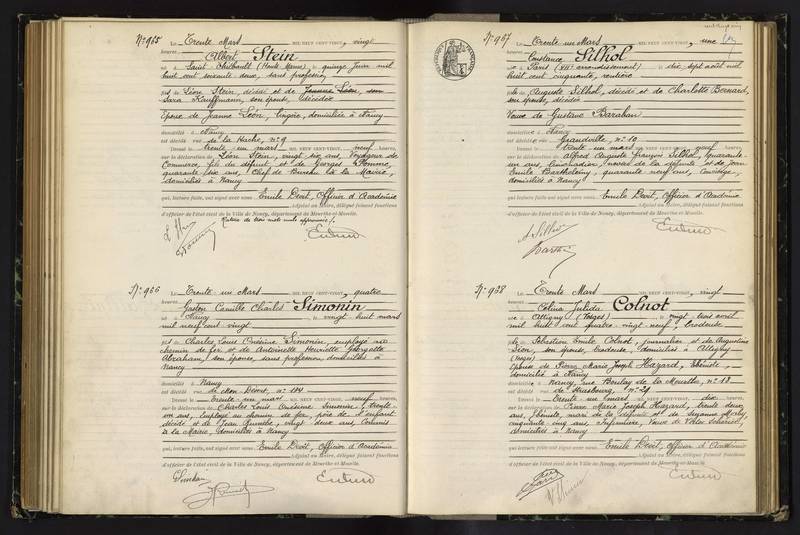 N° 965
Le Trente Mars MIL NEUF CENT-VINGT, vingt
heures,
Albert Stein
né à Saint Thiébault (Haute Marne) le quinze Juin mil
huit cent soixante deux, sans profession
fils de Léon Stein, décédé et de
Sara Kauffmann, son épouse, décédée
Epoux de Jeanne Léon, lingère, domiciliée à Nancy
domicilié à Nancy
est décédé rue de la Hache, n° 9
Dressé le trente un mars neuf heures,
sur la déclaration de Léon Stein, vingt six ans, Voyageur de
Commerce, fils du défunt et de Georges
quarante six ans, Chef de Bureau à la Mairie,
domiciliés à Nancy
qui, lecture faite, ont signé avec nous Emile Devit, Officier d'Académie
Adjoint au Maire, délégué faisant fonctions
d'officier de l'état civil de la Ville de Nancy, département de Meurthe-et-Moselle.
Rature de trois mots nuls approuvée
N° 966
Le Trente un Mars MIL NEUF CENT-VINGT, quatre
heures,
Gaston Camille Charles Simonin
né à Nancy le vingt huit mars
mil neuf cent vingt
fils de Charles Louis Onésime Simonin, employé au
chemin de fer et de Antoinette Henriette Georgette
Abraham, son épouse, sans profession, domiciliés à
Nancy
domicilié à Nancy
est décédé rue de Mon Désert, n°
Dressé le trente un mars neuf heures,
sur la déclaration de Charles Louis Onésime Simonin, trente
un ans, employé au chemin de fer, père de l'enfant
décédé et de Jean vingt deux ans, Commis
à la Mairie, domiciliés à Nancy
qui, lecture faite, ont signé avec nous Emile Devit, Officier d'Académie
Adjoint au Maire, délégué faisant fonctions
d'officier de l'état civil de la Ville de Nancy, département de Meurthe-et-Moselle.
N° 967
Le Trente un Mars MIL NEUF CENT-VINGT, une
heures,
Constance Silhol
née à Paris arrondissement) le dix sept août mil
huit cent cinquante, rentière
fille de Auguste Silhol, décédé et de Charlotte Bernard,
son épouse, décédée
Veuve de Gustave Baraban
domiciliée à Nancy
est décédée rue Grandville, n° 10
Dressé le trente un mars neuf heures,
sur la déclaration de Alfred Auguste François Silhol, quarante
six ans, neveu de la défunte et de Jean
Emile Barthélemy, quarante neuf ans,
domiciliés à Nancy
qui, lecture faite, ont signé avec nous Emile Devit, Officier d'Académie
Adjoint au Maire, délégué faisant fonctions
d'officier de l'état civil de la Ville de Nancy, département de Meurthe-et-Moselle.
N° 968
Le Trente Mars MIL NEUF CENT-VINGT, vingt
heures,
Célina Julida Colnot
née à Attigny (Vosges) le vingt trois avril
mil huit cent quatre vingt neuf, brodeuse
fille de Sébastien Emile Colnot, journalier et de Augustine
son épouse, brodeuse, domiciliés à Attigny
(Vosges)
Epouse de Pierre Marie Joseph Hazard, ébéniste,
domiciliée à Nancy
domiciliée à Nancy, rue Boulay de la Meurthe, n° 13
est décédée rue de Strasbourg, n°
Dressé le trente un mars dix heures,
sur la déclaration de Pierre Marie Joseph Hazard, trente deux
ans, ébéniste, mari de la défunte et de Suzanne
cinquante cinq ans, infirmière, Veuve de
domiciliés à Nancy
qui, lecture faite, ont signé avec nous Emile Devit, Officier d'Académie
Adjoint au Maire, délégué faisant fonctions
d'officier de l'état civil de la Ville de Nancy, département de Meurthe-et-Moselle.